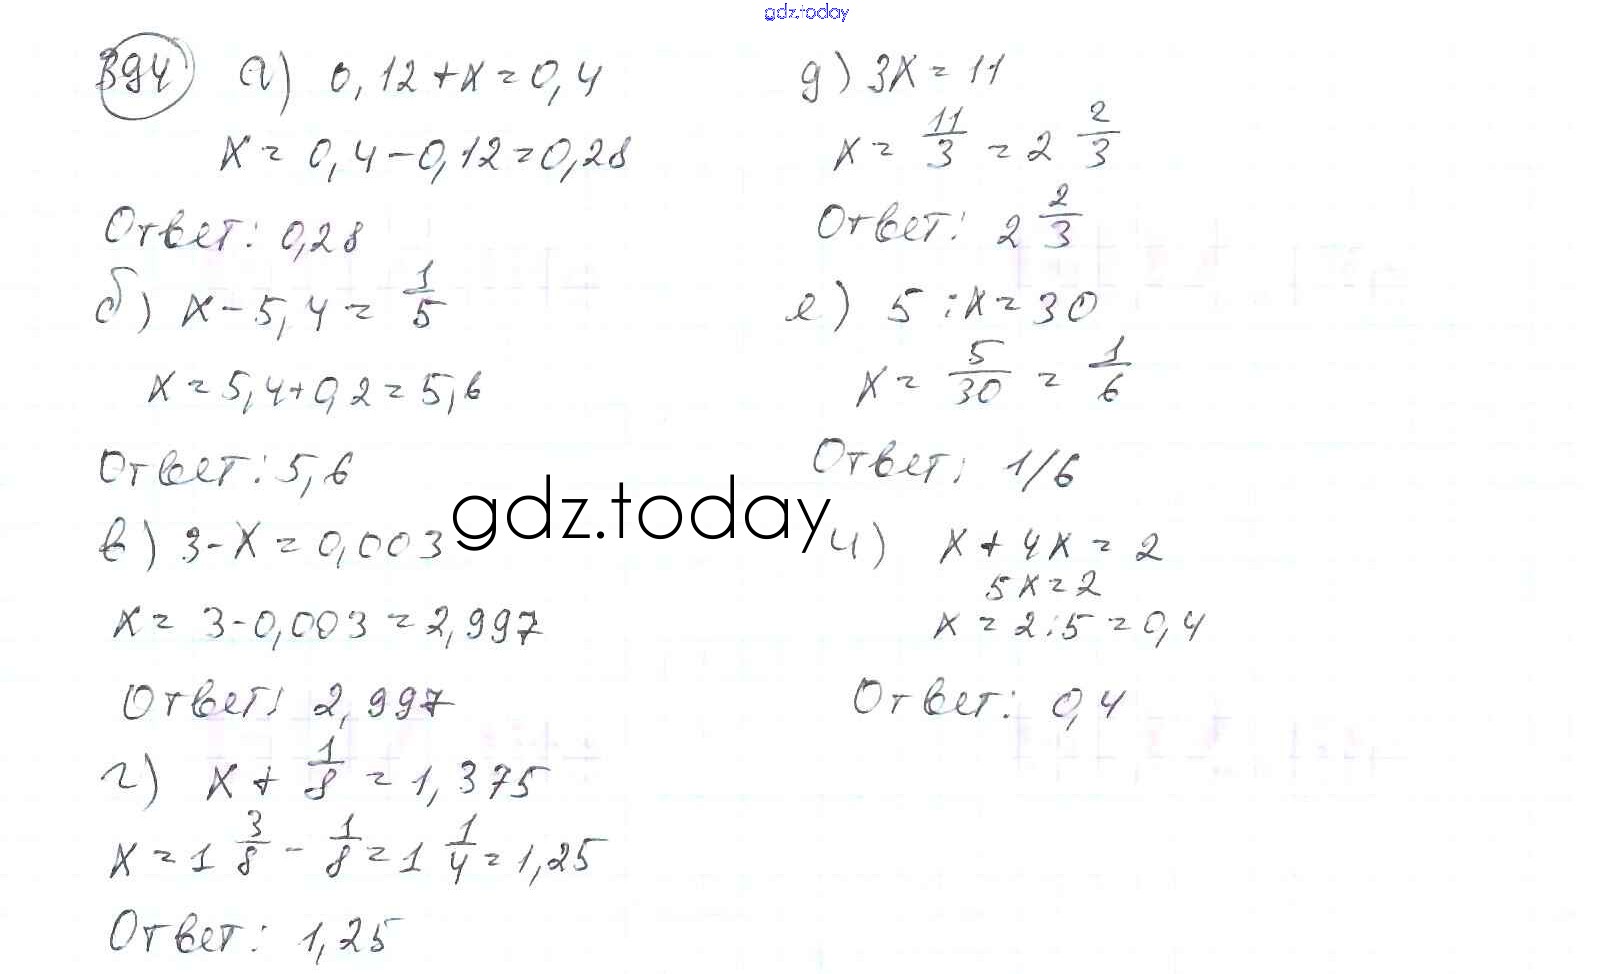 gdz.today
394 а) 0,12+x=0,4
x = 0,4-0,12=0,28
Ответ: 0,28
б) x-5,4=1/5
x=5,4+0,2=5,6
Ответ: 5,6
в) 3-x=0,003
x= 3-0,003=2,997
Ответ: 2,997
г) x+1/8=1,375
x=1 3/8-1/8=1 1/4=1,25
Ответ: 1,25
gdz.today
д) 3x=11
x=11/3=2 2/3
Ответ: 2 2/3
е) 5:x=30
x=5/30=1/6
Ответ: 1/6
ч) x+4x=2
5x=2
x=2:5=0,4
Ответ: 0,4